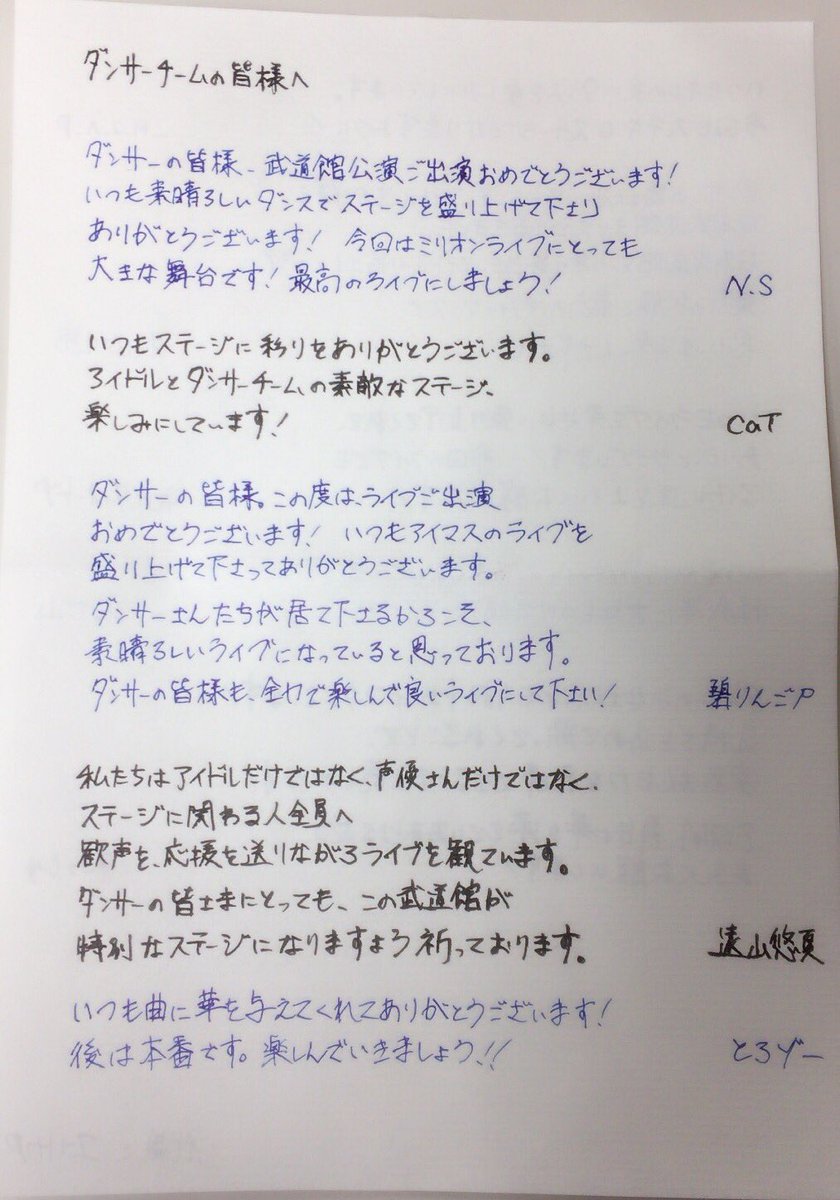 ダンサーチームの皆様へ
ダンサーの皆様、武道館公演ご出演おめでとうございます!
いつも素晴らしいダンスでステージを盛り上げて下さり
ありがとうございます! 今回はミリオンライブにとっても
大きな舞台です!最高のライブにしましょう!
N.S
いつもステージに彩りをありがとうございます。
アイドルとダンサーチームの素敵なステージ、
楽しみにしています!
CaT
ダンサーの皆様。この度は、ライブご出演
おめでとうございます! いつもアイマスのライブを
盛り上げて下さってありがとうございます。
ダンサーさんたちが居て下さるからこそ、
素晴らしいライブになっていると思っております。
ダンサーの皆様も、全力で楽しんで良いライブにして下さい!
碧りんごP
私たちはアイドルだけではなく、声優さんだけではなく、
ステージに関わる人全員へ
歓声を、応援を送りながらライブを観ています。
ダンサーの皆さまにとっても、この武道館が
特別なステージになりますよう祈っております。
遠山悠夏
いつも曲に華を与えてくれてありがとうございます!
後は本番です。楽しんでいきましょう!!
とろゾー